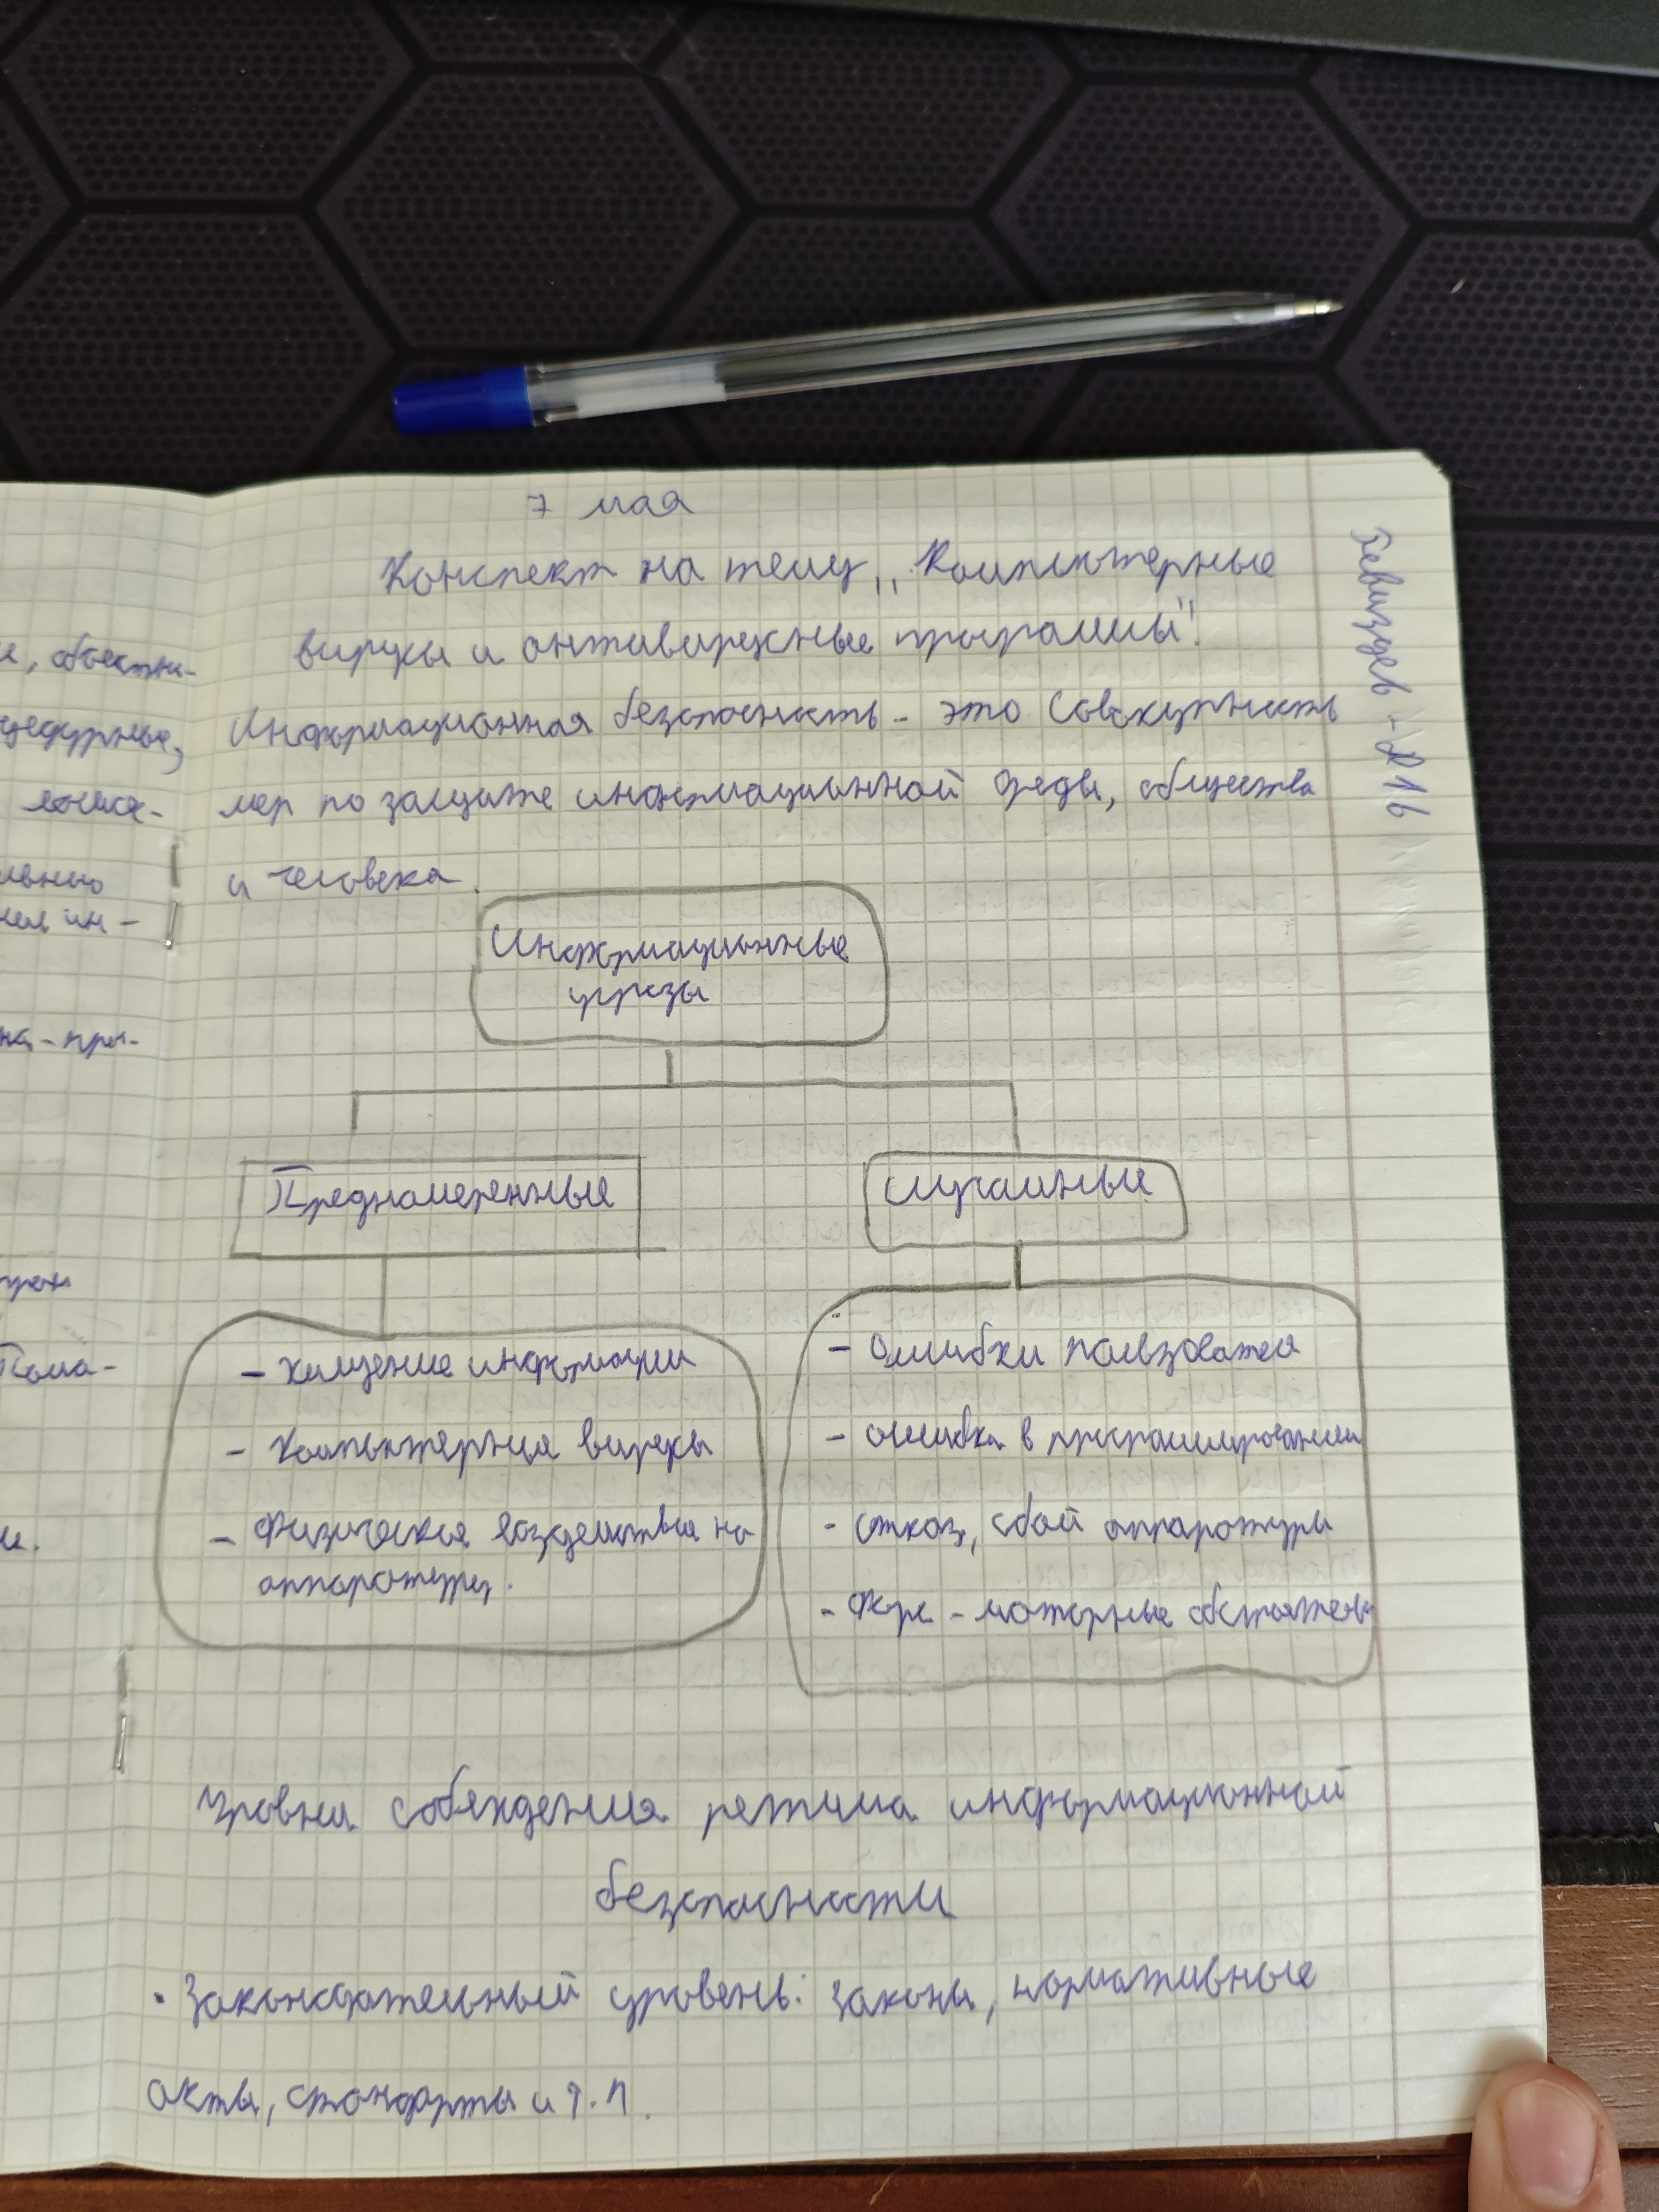 7 мая
Конспект на тему „Компьютерные
вирусы и антивирусные программы".
Информационная безопасность - это совокупность
мер по защите информационной среды, общества
и человека.
Информационные
угрозы
Преднамеренные
случайные
- хищение информации
- Компьютерные вирусы
- Физическое воздействие на
аппаратуру.
- Ошибки пользователя
- ошибка в программировании
- отказ, сбой аппаратуры
- Форс-мажорные обстоятель
Уровни соблюдения режима информационной
безопасности
• Законодательный уровень: законы, нормативные
акты, стандарты и т.п.
на-при-